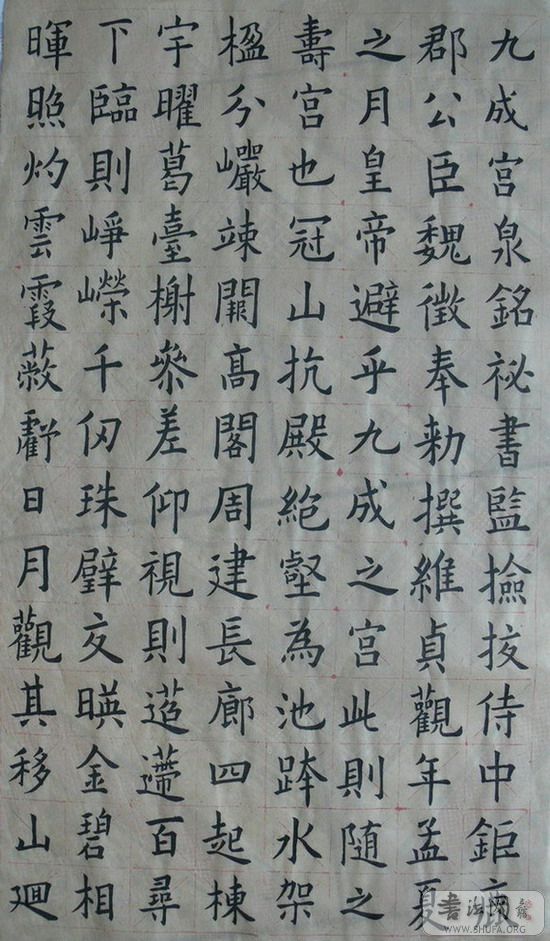 九成宮泉銘祕書監撿挍侍中鉅鹿
郡公臣魏徵奉勑撰維貞觀年孟夏
之月皇帝避乎九成之宮此則随之
壽宮也冠山抗殿絶壑為池跨水架
楹分巗竦闕高閣周建長廊四起棟
宇曜葛臺榭叅差仰視則迢遰百尋
下臨則崢嶸千仞珠璧交暎金碧相
暉照灼雲霞蔽虧日月觀其移山廻
书法网
WWW.SHUFA.ORG